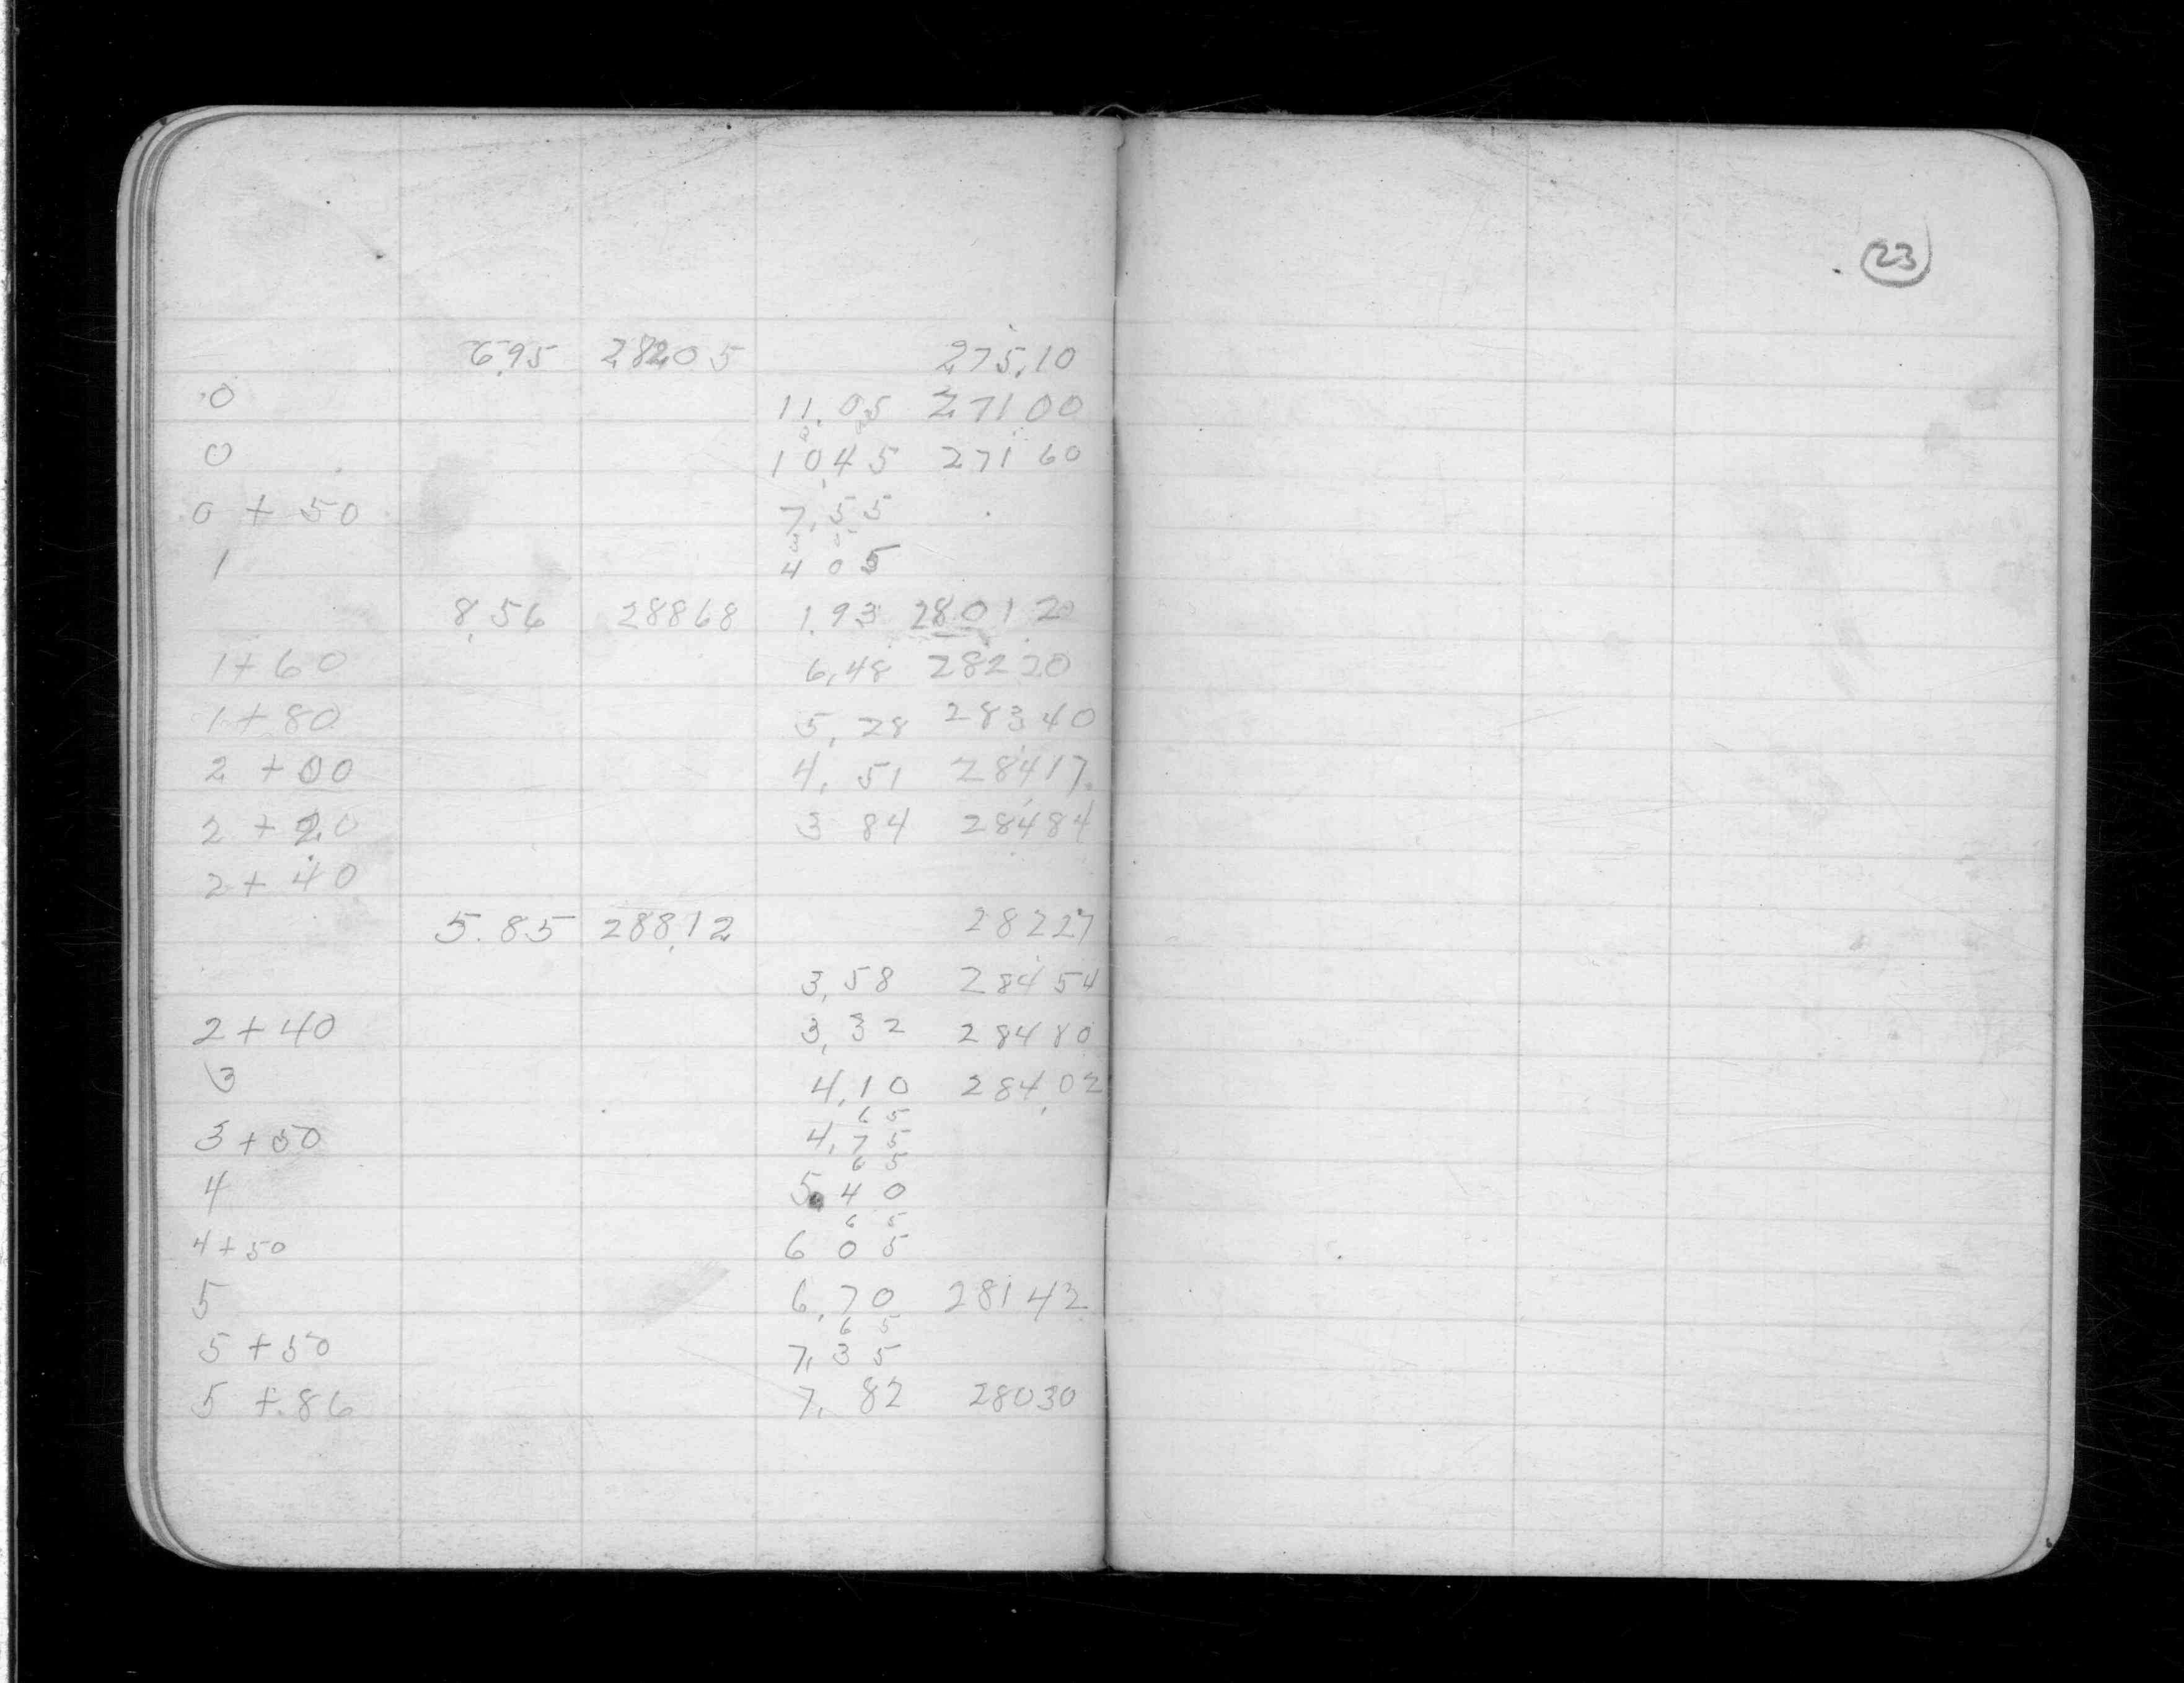 6.95 28205 275.10
0 11.05 27100
0 10.45 27160
0 + 50 7.55
1 405
8.56 28868 1.93 28012
1+60 6.48 28220
1+80 5.28 28340
2 +00 4.51 28417
2 + 20 3 84 28484
2 + 40
5.85 288.12 28227
3.58 28454
2 + 40 3.32 28480
3 4.10 284.02
6 5
3 + 50 4.75
6 5
4 5.40
6 5
4+50 6 05
5 6.70 28142
6 5
5 +50 7.35
5 +.86 7.82 28030
23